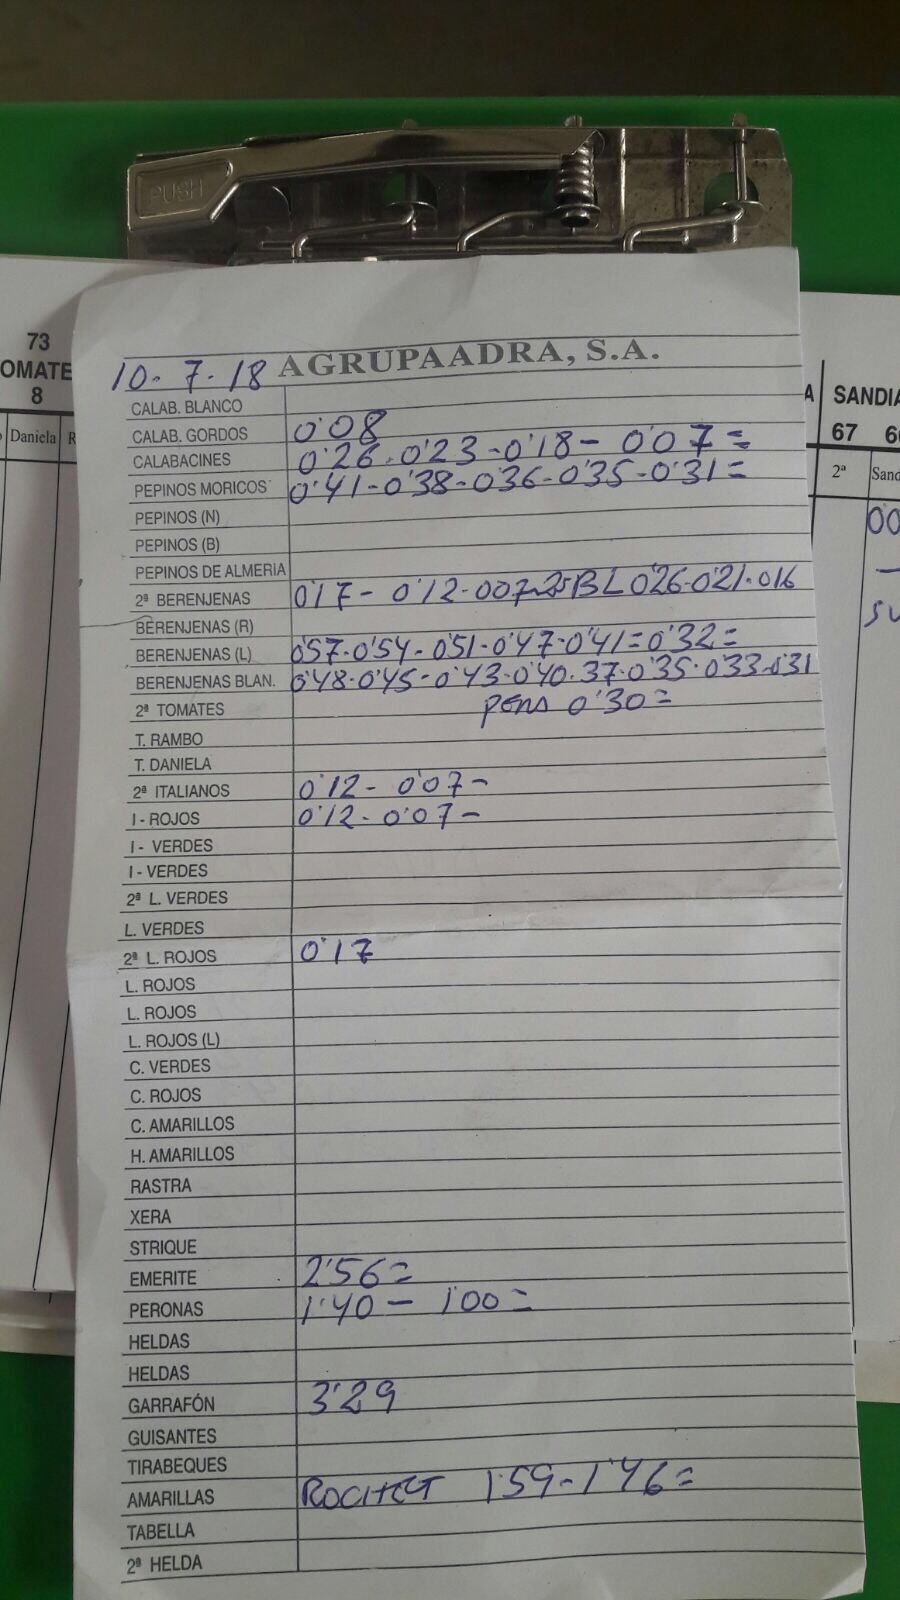 PUSH
73
OMATE
8
Daniela
R
A
SANDIA
67
2ª
Sand
10-7-18 AGRUPAADRA, S.A.
CALAB. BLANCO
CALAB. GORDOS 0'08
CALABACINES 0'26-0'23-0'18- 0'07=
PEPINOS MORICOS 0'41-0'38-036-0'35-0'31=
PEPINOS (N)
PEPINOS (B)
PEPINOS DE ALMERIA
2ª BERENJENAS 0'17- 0'12-007- BL 0'26-021-016
BERENJENAS (R)
BERENJENAS (L) 0'57-0'54-051-0'47-0'41=0'32=
BERENJENAS BLAN. 0'48-0'45-0'43-0'40-37-0'35-033-031
2ª TOMATES 0'30=
T. RAMBO
T. DANIELA
2ª ITALIANOS 0'12- 0'07-
I - ROJOS 0'12-0'07-
I - VERDES
I - VERDES
2ª L. VERDES
L. VERDES
2ª L. ROJOS 0'17
L. ROJOS
L. ROJOS
L. ROJOS (L)
C. VERDES
C. ROJOS
C. AMARILLOS
H. AMARILLOS
RASTRA
XERA
STRIQUE
EMERITE 2'56=
PERONAS 1'40- 1'00=
HELDAS
HELDAS
GARRAFÓN 3'29
GUISANTES
TIRABEQUES
AMARILLAS 1'59-1'46=
TABELLA
2ª HELDA